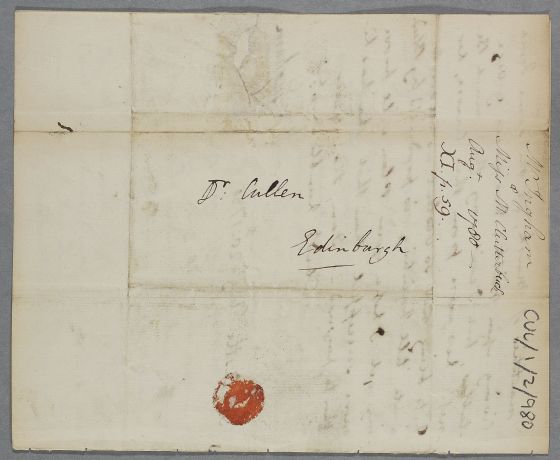 Dr. Cullen
Edinburgh
Mr Ingham
a
Miss M. Clutterbuck
Augt. 1780
XI p. 59.
CUL/1/2/980